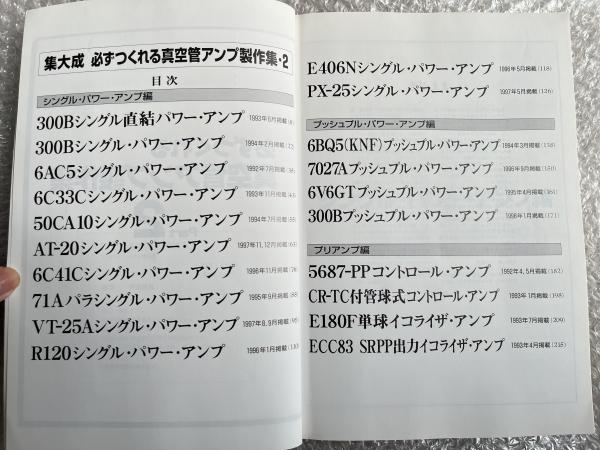 集大成 必ずつくれる真空管アンプ製作集・2
目次
シングル・パワー・アンプ編
300Bシングル直結パワー・アンプ 1993年6月掲載
300Bシングル・パワー・アンプ 1994年2月掲載
6AC5シングル・パワー・アンプ 1992年7月掲載
6C33Cシングル・パワー・アンプ 1993年11月掲載
50CA10シングル・パワー・アンプ 1994年7月掲載
AT-20シングル・パワー・アンプ 1997年11,12月掲載
6C41Cシングル・パワー・アンプ 1996年11月掲載
71Aパラシングル・パワー・アンプ 1995年9月掲載
VT-25Aシングル・パワー・アンプ 1997年8,9月掲載
R120シングル・パワー・アンプ 1996年1月掲載
E406Nシングル・パワー・アンプ 1996年5月掲載(118)
PX-25シングル・パワー・アンプ 1997年5月掲載(126)
プッシュプル・パワー・アンプ編
6BQ5(KNF)プッシュプル・パワー・アンプ 1994年3月掲載(138)
7027Aプッシュプル・パワー・アンプ 1996年9月掲載(150)
6V6GTプッシュプル・パワー・アンプ 1995年4月掲載(161)
300Bプッシュプル・パワー・アンプ 1998年1月掲載(171)
プリアンプ編
5687-PPコントロール・アンプ 1992年4,5月掲載(182)
CR-TC付管球式コントロール・アンプ 1993年1月掲載(198)
E180F単球イコライザ・アンプ 1993年7月掲載(209)
ECC83 SRPP出力イコライザ・アンプ 1993年4月掲載(215)